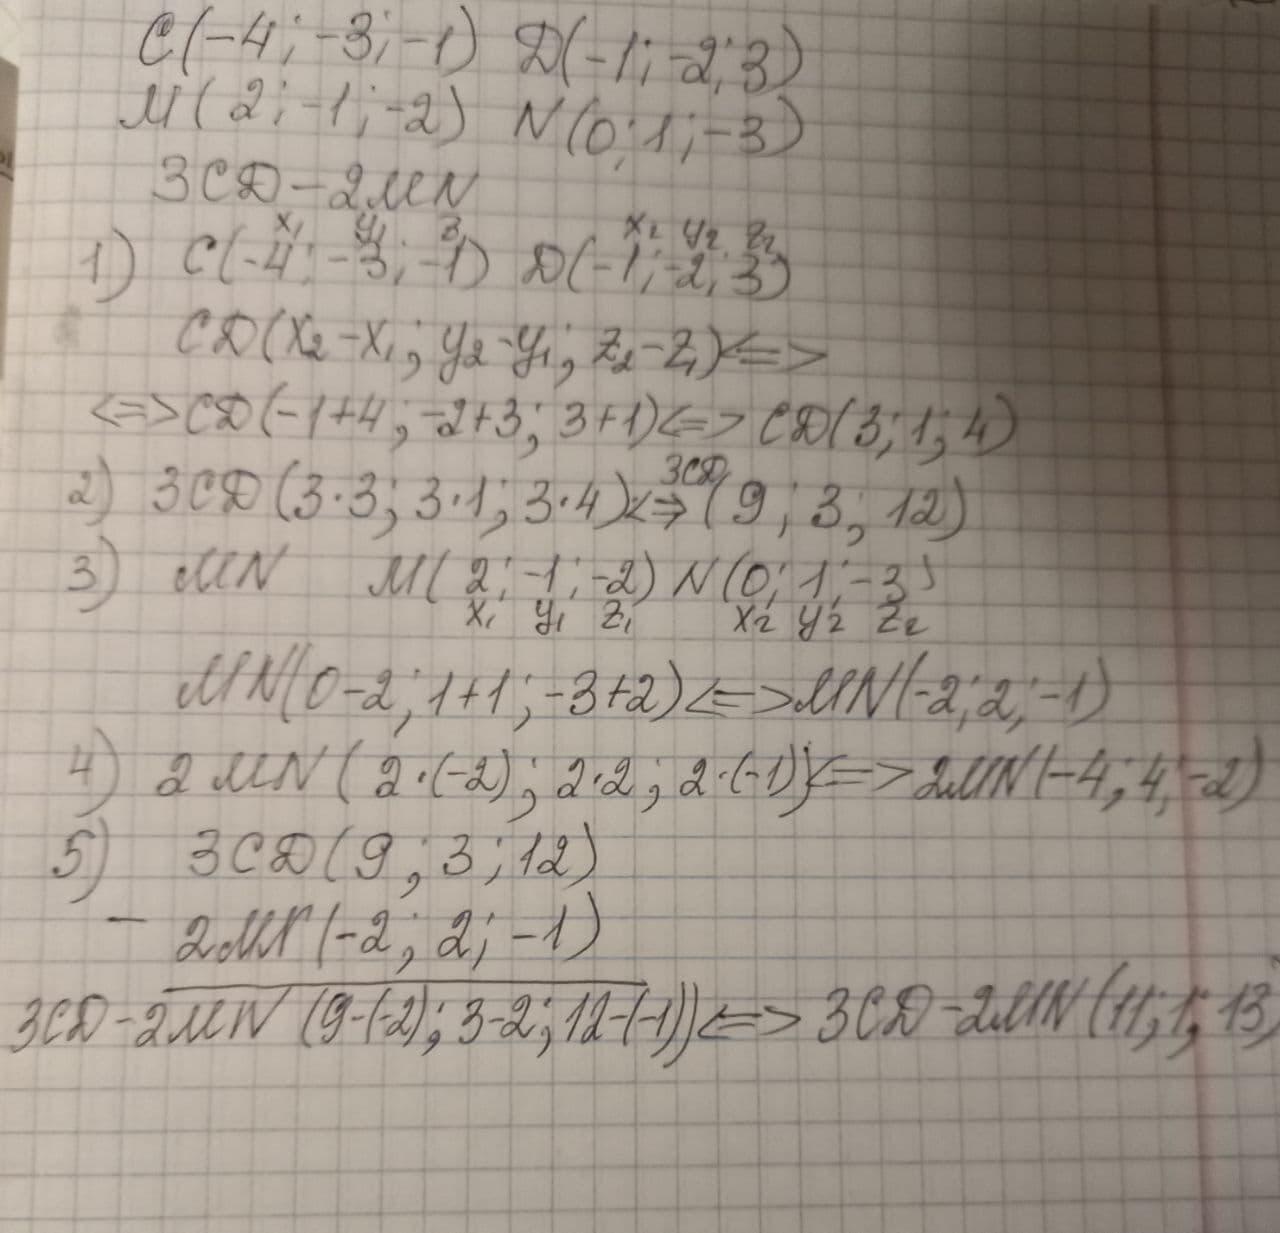 C(-4; -3; -1) D(-1; -2; 3)
M(2; -1; -2) N(0; 1; -3)
3CD - 2MN
x₁ y₁ z₁ x₂ y₂ z₂
1) C(-4; -3; -1) D(-1; -2; 3)
CD(x₂-x₁; y₂-y₁; z₂-z₁) <=>
<=> CD(-1+4; -2+3; 3+1) <=> CD(3; 1; 4)
2) 3CD(3·3; 3·1; 3·4) <=> 3CD(9; 3; 12)
3) MN M(2; -1; -2) N(0; 1; -3)
x₁ y₁ z₁ x₂ y₂ z₂
MN(0-2; 1+1; -3+2) <=> MN(-2; 2; -1)
4) 2MN(2·(-2); 2·2; 2·(-1)) <=> 2MN(-4; 4; -2)
5) 3CD(9; 3; 12)
- 2MN(-2; 2; -1)
3CD-2MN (9-(-2); 3-2; 12-(-1)) <=> 3CD-2MN(11; 1; 13)